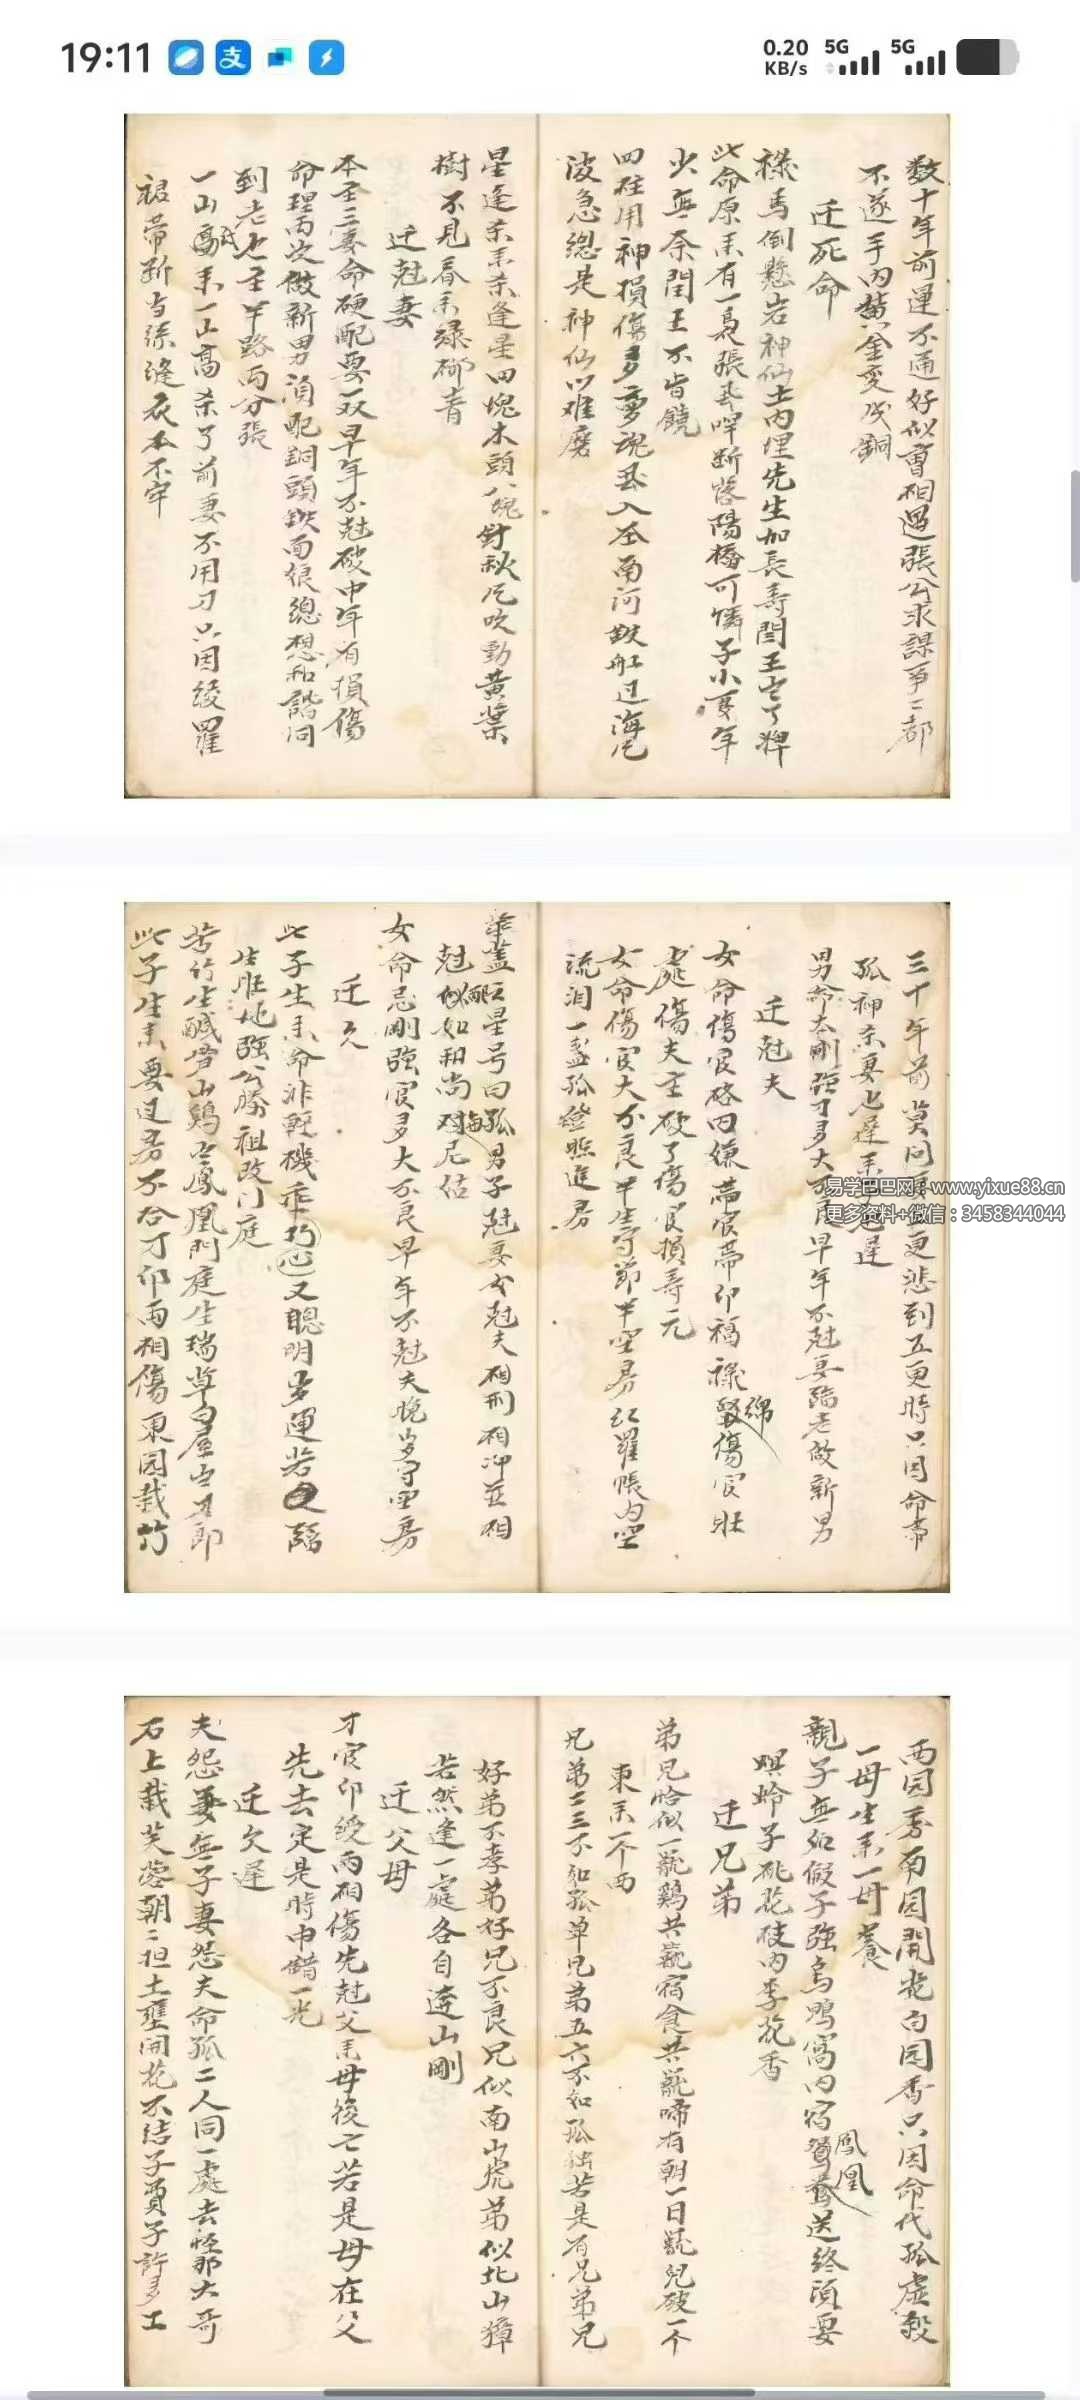 19:11
0.20 KB/s
5G
5G
数十年前運不通好似曹相遇張公求謀事二都
不遂手内黄金変成銅
迁死命
祿馬倒懸岩神仙土内埋先生加長寿閻王
此命原来有一張断洛陽橋可憐子小年
少無奈閻王不肯饒
四柱用神損傷多夢魂入南河船过海
波急總是神仙以难磨
星逢杀来杀逢星四塊木頭八塊釘秋風吹動黄葉
樹不見春来绿柳青
迁尅妻
本主三妻命硬配要一双早年不尅破中年有損傷
命理两次做新男須配銅頭鉄面狼總想和諧同
到老也主半路两分張
一山来一山高杀了前妻不用刀只因绫羅
裙带断与绦縫衣本不牢
三十年前莫問更悲到五更時只因命带
孤神杀妻也遲来子也遲
男命太剛强才多大不良早年不尅妻臨老做新男
迁尅夫
女命傷官格内嫌带官带印福祿綿傷官旺
處傷夫主破了傷官損寿元
女命傷官大不良半生守節半空房红羅帳内空
流泪一盏孤燈照進房
華盖星号曰孤男子尅妻女尅夫相刑相冲並相
尅似如和尚对尼姑
女命忌剛强官多大不良早年不尅夫晚岁守空房
迁欠
此子生来命非軽機乖巧心又聰明岁運若臨
生旺地强公勝祖改门庭
苦竹生鹹笋山鷄出鳳凰門庭生瑞草白屋出郎
此子生来要过房不合才印两相傷東园栽竹
易学巴巴网：www.yixue88.cn
更多资料+微信：3458344044
西园秀南园開花白园香只因命代孤虚殺
一母生来一母養
親子無如假子强烏鴉窩内宿鳳凰送终須要
螟蛉子桃花枝内李花香
迁兄弟
弟兄恰似一瓶鷄共瓶宿食共瓶啼有朝一日瓶兒破一个
東来一个西
兄弟二三不如孤单兄弟五六不如孤独若是有兄弟兄
好弟不孝弟好兄不良兄似南山虎弟似北山獐
若然逢一處各自逞山剛
迁父母
才官印绶两相傷先尅父来母後亡若是母在父
先去定是時中錯一光
迁欠遲
夫怨妻無子妻怨夫命孤二人同一處去怪那大哥
石上栽芙蓉朝二担土壅開花不结子賈子許多工